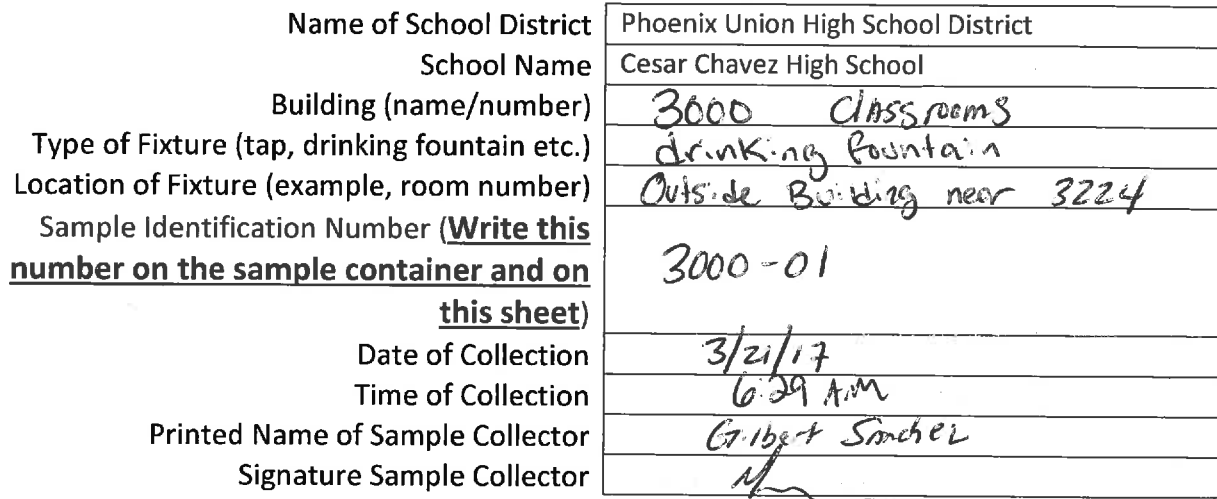 Name of School District Phoenix Union High School District
School Name Cesar Chavez High School
Building (name/number) 3000 Classrooms
Type of Fixture (tap, drinking fountain etc.) drinking fountain
Location of Fixture (example, room number) Outside Building near 3224
Sample Identification Number (Write this
number on the sample container and on
this sheet) 3000-01
Date of Collection 3/21/17
Time of Collection 6:29 A.M
Printed Name of Sample Collector Gilbert Sanchez
Signature Sample Collector